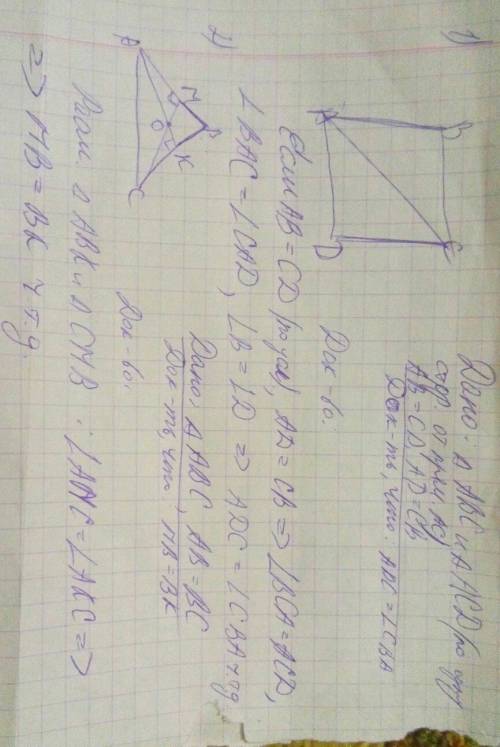 1)
B C
A D
Дано: Δ ABC и Δ ACD (по
стор от прям AC)
AB = CD, AD = CB
Док-ть, что: ADC = ∠CBA
Док-во:
Если AB = CD (по усл), AD = CB => ∠BCA = ACD,
∠BAC = ∠CAD, ∠B = ∠D => ADC = ∠CBA ч.т.д.
2)
B
M K
O
A C
Дано: Δ ABC, AB = BC
Док-ть, что: MB = BK
Док-во:
Расм Δ ABK и Δ CMB: = ∠AKC =>
=> MB = BK ч.т.д.